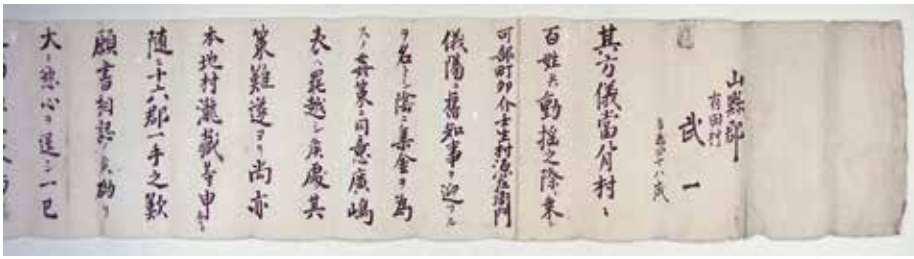 山縣郡
有田村
武一
其方儀當八月村々
百姓共動揺之際ニ乗シ
可部町卯介壬生村源左衛門
儀陽ニ舊知事ヲ迎フル
ヲ名トシ陰ニ集金ヲ為
スノ奸策ニ同意廣嶋
表ヘ罷越シ候處其
策難遂ヨリ尚亦
本地村瀧蔵等申ニ
随ヒ十六郡一手之歎
願書相認候砌ヨリ
大ニ悪心ヲ逞シ一己